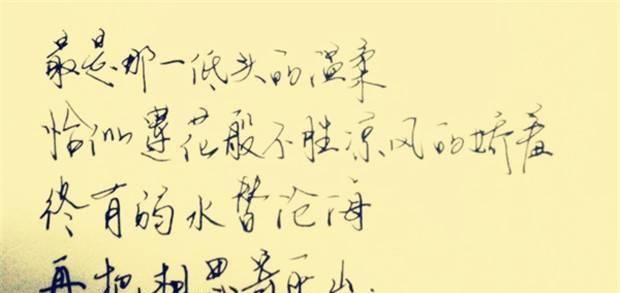 最是那一低头的温柔
恰似莲花般不胜凉风的娇羞
终有弱水替沧海
再把相思寄巫山.